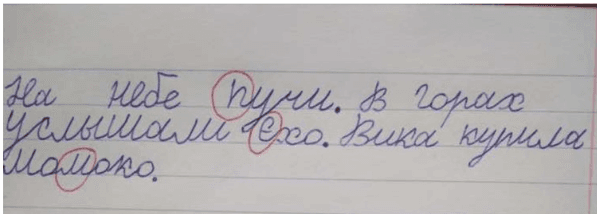 На небе пучи. В горах
услышали Єхо. Вика купила
момоко.